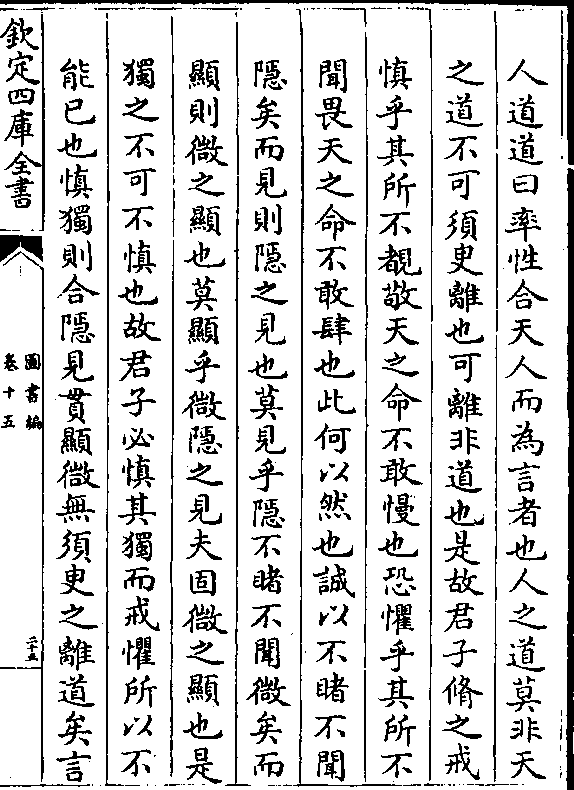 人道道曰率性合天人而為言者也人之道莫非天
之道不可須臾離也可離非道也是故君子脩之戒
慎乎其所不覩敬天之命不敢慢也恐懼乎其所不
聞畏天之命不敢肆也此何以然也誠以不睹不聞
隱矣而見則隱之見也莫見乎隱不睹不聞微矣而
顯則微之顯也莫顯乎微隱之見夫固微之顯也是
獨之不可不慎也故君子必慎其獨而戒懼所以不
能已也慎獨則合隱見貫顯微無須臾之離道矣言
欽定四庫全書
圖書編
卷十五
二十五